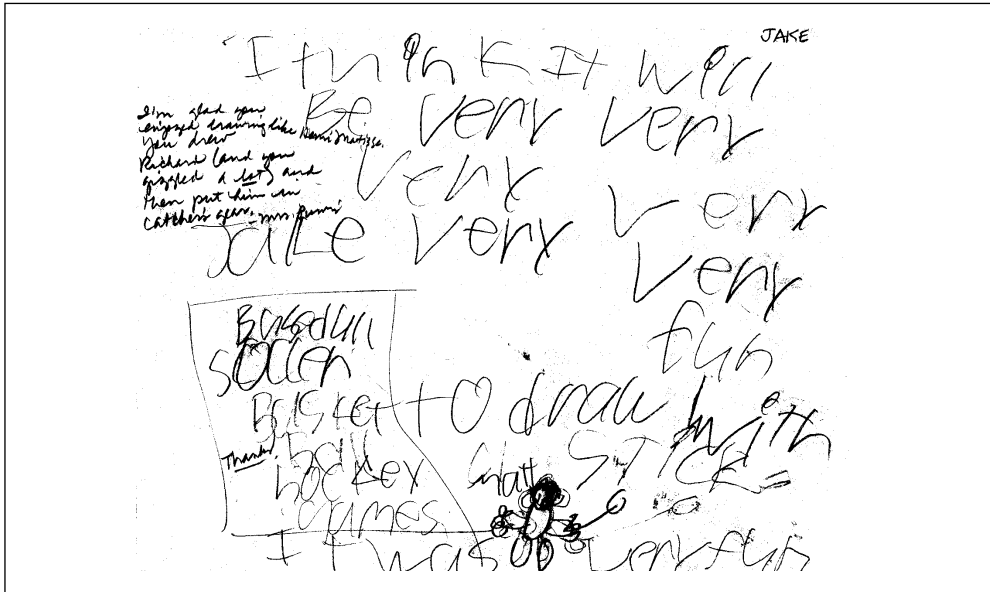 JAKE
I think It will
Be very very
very very
Jake very very
fun
to draw with
a STICK
I'm glad you
enjoyed drawing like Henri Matisse.
You drew
Richard (and you
giggled a lot) and
then put him in
catcher's gear. -Mrs.
Baseball
SOCCER
Basket
Ball
hockey
games
Thanks
It was very fun